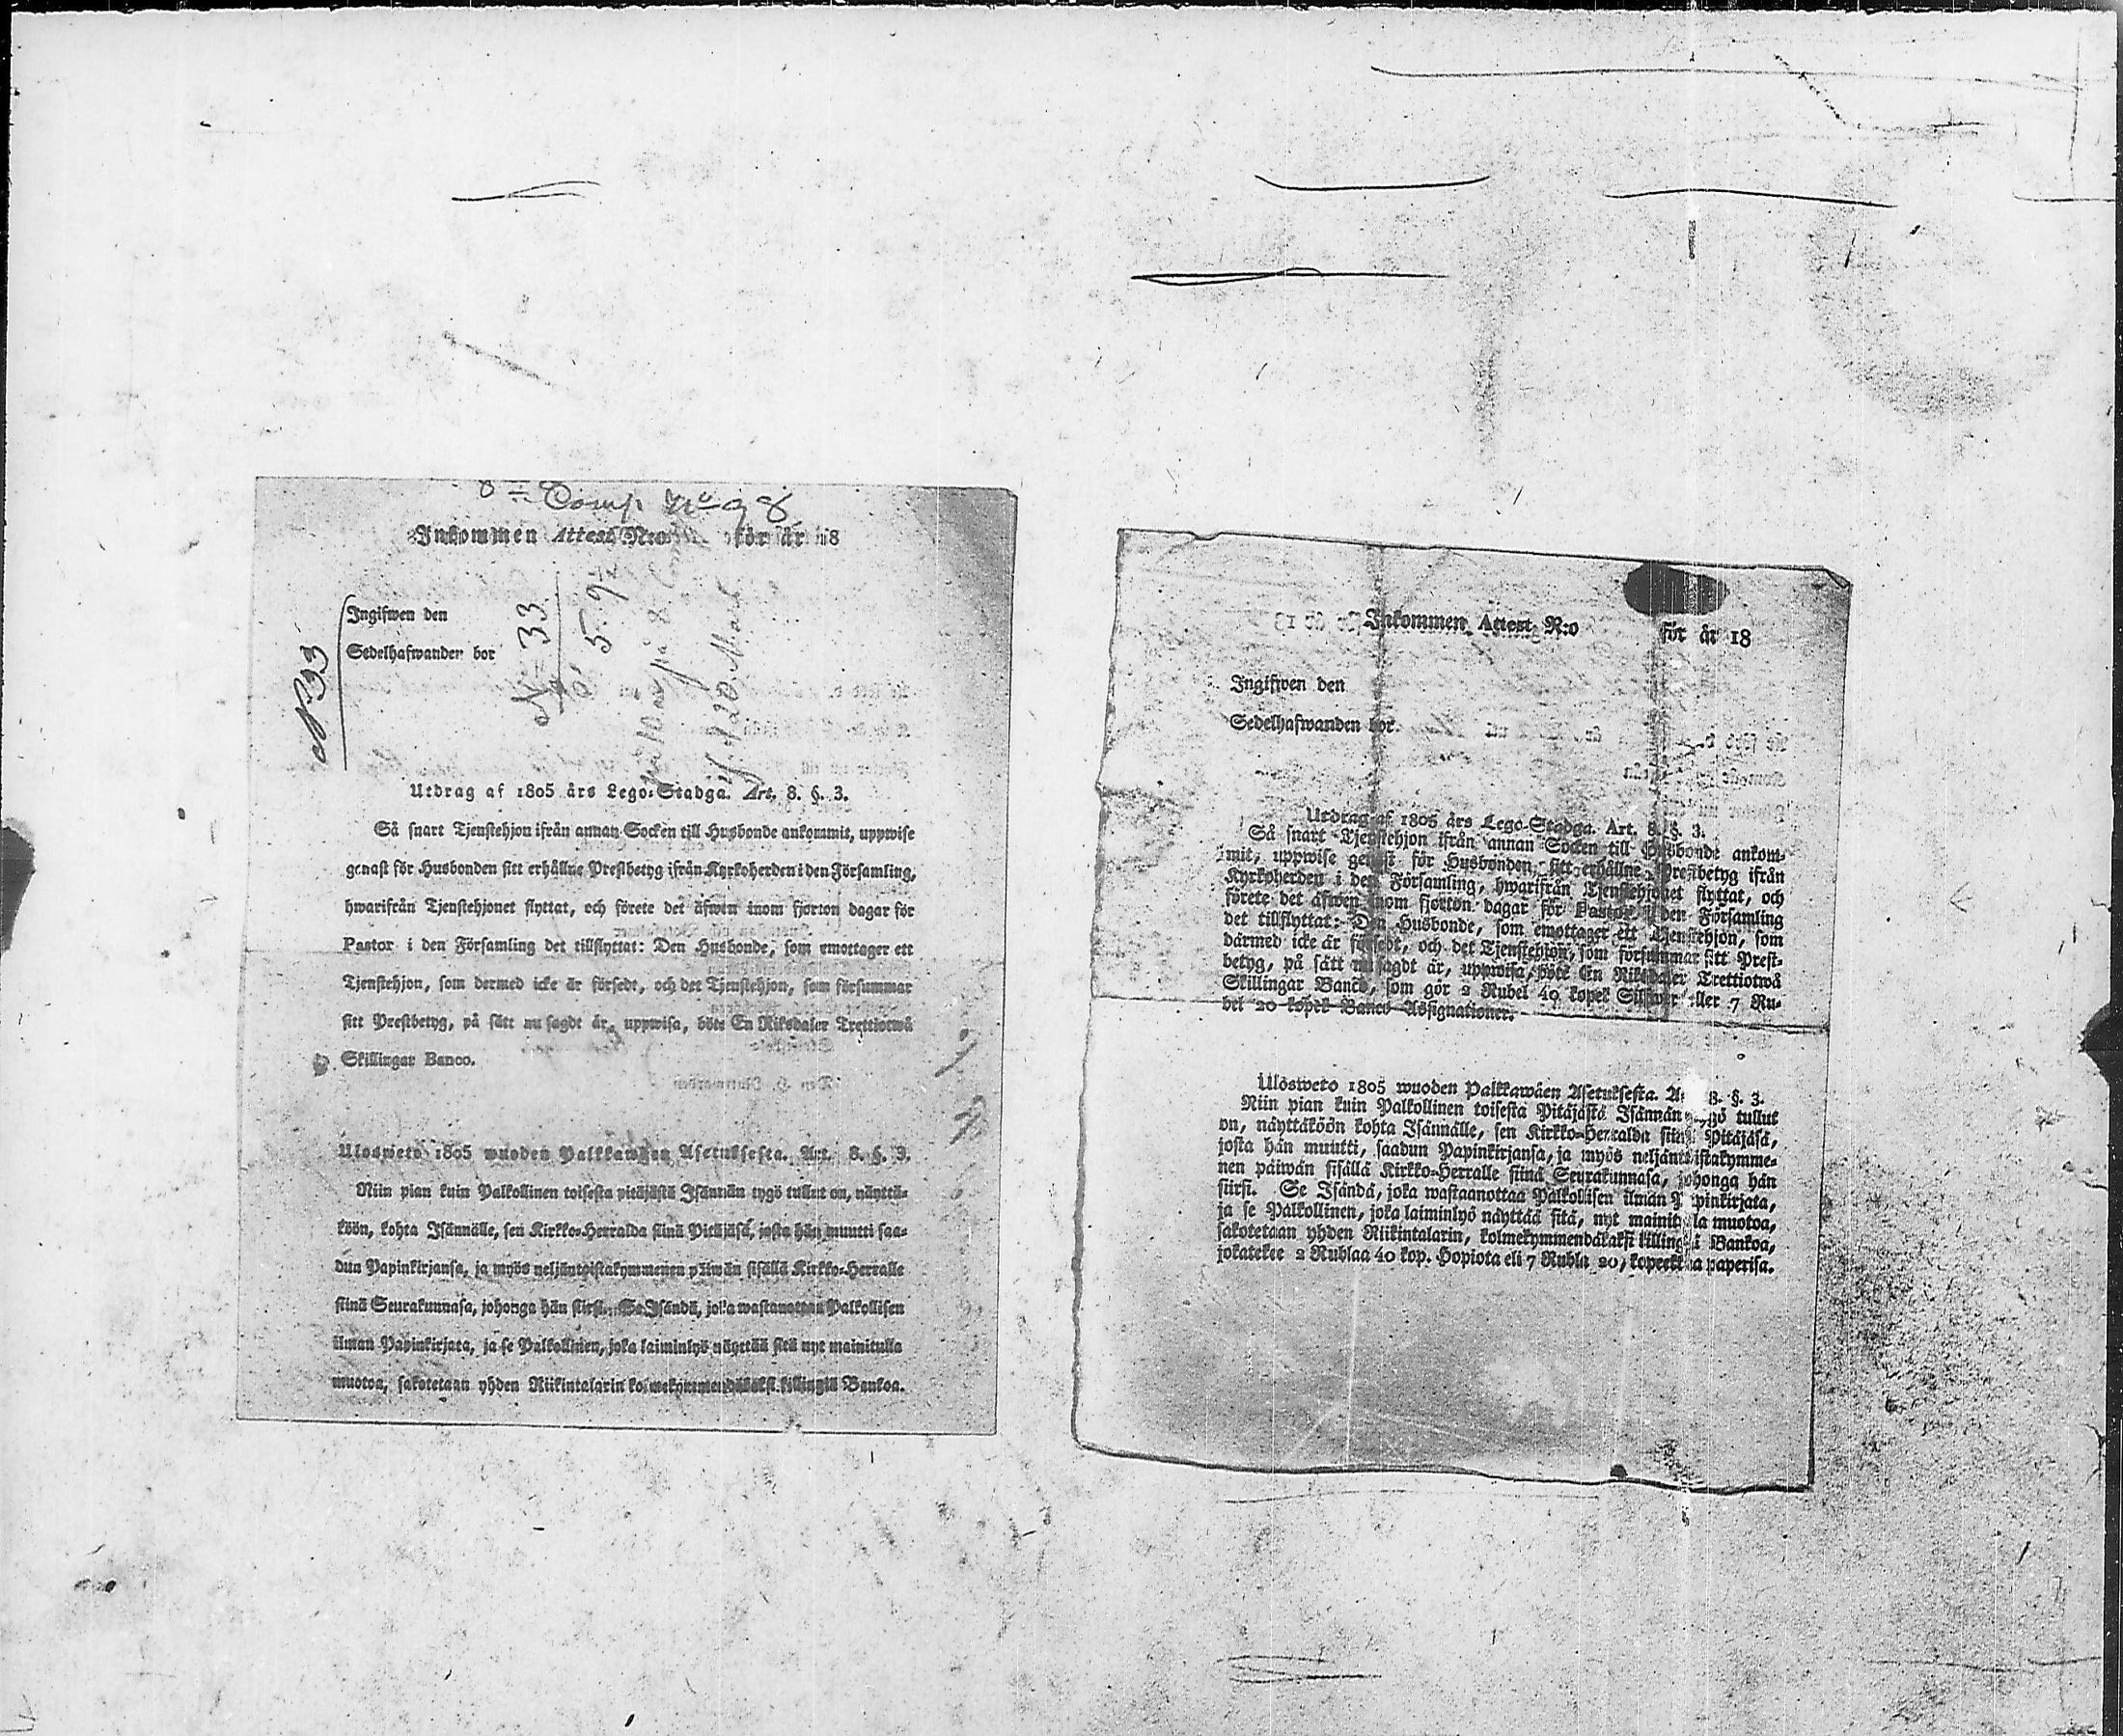 Comp. No 98
Inkommen Attest N:o för år 18
Ingifwen den
Sedelhafwanden bor
N 33
N 33
5. 9
Utdrag af 1805 års Lego-Stadga. Art. 8. §. 3.
Så snart Tjenstehjon ifrån annan Socken till Husbonde ankommit, uppwise
genast för Husbonden sitt erhållne Prestbetyg ifrån Kyrkoherden i den Församling,
hwarifrån Tjenstehjonet flyttat, och förete det äfwen inom fjorton dagar för
Pastor i den Församling det tillflyttat: Den Husbonde, som emottager ett
Tjenstehjon, som dermed icke är försedt, och det Tjenstehjon, som försummar
sitt Prestbetyg, på sätt nu sagdt är, uppwisa, böte En Riksdaler Trettiotwå
Skillingar Banco.
Ulosweto 1805 wuoden Palkkawäen Asetuksesta. Art. 8. §. 3.
Niin pian kuin Palkollinen toisesta pitäjästä Isännän tygö tullut on, näyttä-
köön, kohta Isännälle, sen Kirkko-Herralda siinä Pitäjäsä, josta hän muutti saa-
dun Papinkirjansa, ja myös neljäntoistakymmenen päiwän sisällä Kirkko-Herralle
siinä Seurakunnasa, johonga hän siirsi. Se Isändä, joka wastanottaa Palkollisen
ilman Papinkirjata, ja se Palkollinen, joka laiminlyö näyttää sitä nyt mainitulla
muotoa, sakotetaan yhden Riikintalarin kolmekymmendäkaksi killingiä Bankoa.
Inkommen Attest N:o för år 18
Ingifwen den
Sedelhafwanden bor
Utdrag af 1805 års Lego-Stadga. Art. 8. §. 3.
Så snart Tjenstehjon ifrån annan Socken till Husbonde ankom-
mit, uppwise genast för Husbonden sitt erhållne Prestbetyg ifrån
Kyrkoherden i den Församling, hwarifrån Tjenstehjonet flyttat, och
förete det äfwen inom fjorton dagar för Pastor i den Församling
det tillflyttat: Den Husbonde, som emottager ett Tjenstehjon, som
därmed icke är försedt, och det Tjenstehjon, som försummar sitt Prest-
betyg, på sätt nu sagdt är, uppwisa, böte En Riksdaler Trettiotwå
Skillingar Banco, som gör 2 Rubel 40 kopek Silfwer eller 7 Ru-
bel 20 kopek Banco Assignationer.
Ulosweto 1805 wuoden Palkkawäen Asetuksesta. Art. 8. §. 3.
Niin pian kuin Palkollinen toisesta Pitäjästä Isännän tygö tullut
on, näyttäköön kohta Isännälle, sen Kirkko-Herralda siinä Pitäjäsä,
josta hän muutti, saadun Papinkirjansa, ja myös neljäntoistakymme-
nen päiwän sisällä Kirkko-Herralle siinä Seurakunnasa, johonga hän
siirsi. Se Isändä, joka wastaanottaa Palkollisen ilman Papinkirjata,
ja se Palkollinen, joka laiminlyö näyttää sitä, nyt mainitulla muotoa,
sakotetaan yhden Riikintalarin, kolmekymmendäkaksi killingiä Bankoa,
jokatekee 2 Rublaa 40 kop. Hopiota eli 7 Rubla 20, kopeekkaa paperisa.